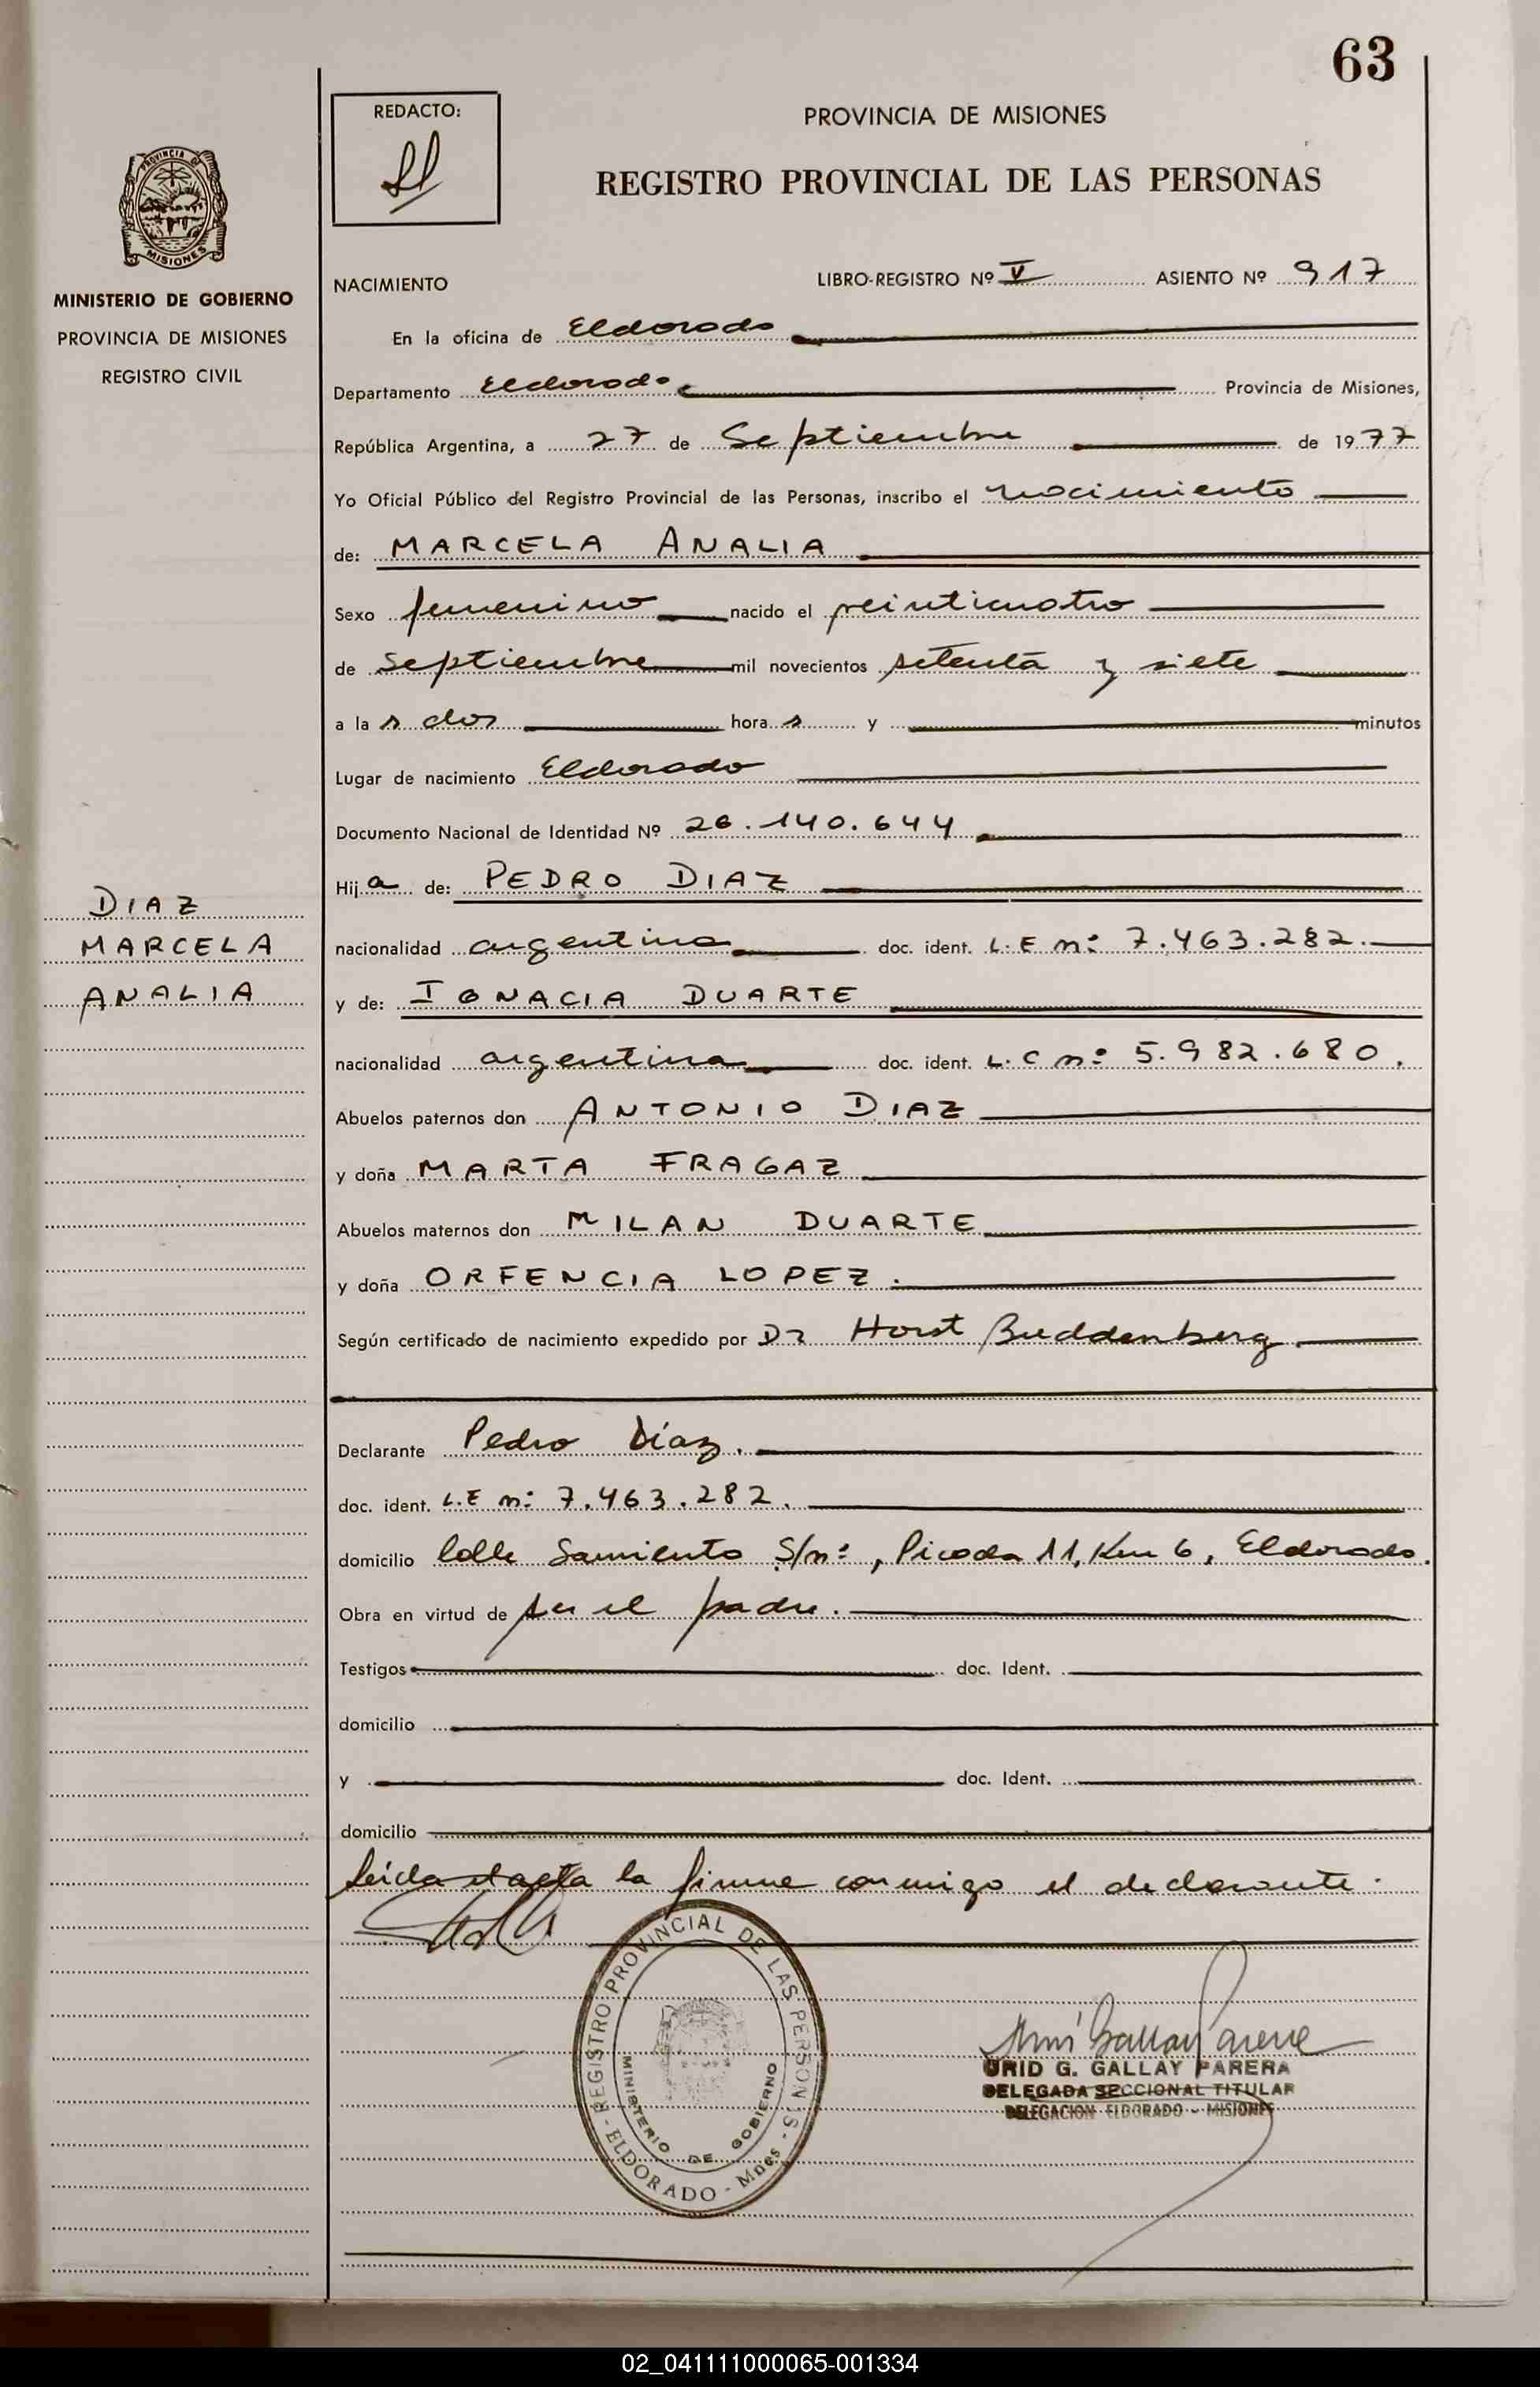 63
REDACTO:
PROVINCIA DE MISIONES
REGISTRO PROVINCIAL DE LAS PERSONAS
PROVINCIA DE
MISIONES
MINISTERIO DE GOBIERNO
PROVINCIA DE MISIONES
REGISTRO CIVIL
NACIMIENTO LIBRO-REGISTRO Nº V ASIENTO Nº 917
En la oficina de Eldorado
Departamento Eldorado Provincia de Misiones,
República Argentina, a 27 de Septiembre de 1977
Yo Oficial Público del Registro Provincial de las Personas, inscribo el nacimiento
de: MARCELA ANALIA
Sexo femenino nacido el veinticuatro
de septiembre mil novecientos setenta y siete
a la s dos hora s y minutos
Lugar de nacimiento Eldorado
Documento Nacional de Identidad Nº 26.140.644
Hij a de: PEDRO DIAZ
DIAZ
MARCELA
ANALIA
nacionalidad argentina doc. ident. L.E nº 7.463.282.
y de: IGNACIA DUARTE
nacionalidad argentina doc. ident. L.C nº 5.982.680.
Abuelos paternos don ANTONIO DIAZ
y doña MARTA FRAGAZ
Abuelos maternos don MILAN DUARTE
y doña ORFENCIA LOPEZ.
Según certificado de nacimiento expedido por Dr Horst Buddenberg
Declarante Pedro Díaz.
doc. ident. L.E nº 7.463.282.
domicilio Calle Sarmiento S/nº, Picada 11, Km 6, Eldorado.
Obra en virtud de ser el padre.
Testigos doc. Ident.
domicilio
y doc. Ident.
domicilio
Leída el acta la firma conmigo el declarante.
REGISTRO PROVINCIAL DE LAS PERSONAS - ELDORADO - Mnes -
MINISTERIO DE GOBIERNO
URID G. GALLAY PARERA
DELEGADA SECCIONAL TITULAR
DELEGACION ELDORADO - MISIONES
02_041111000065-001334